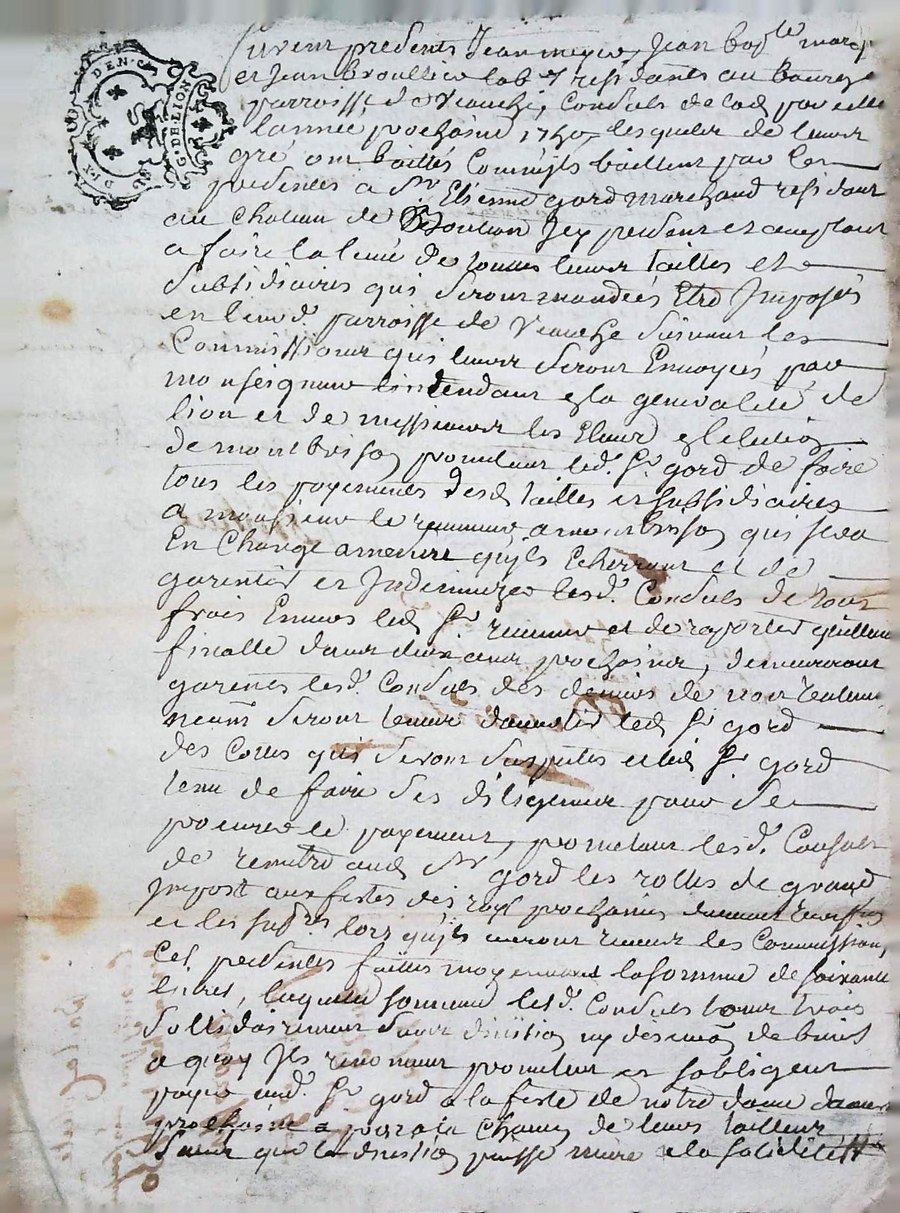 DEN.C
G.DELION
furent presents Jean meyer, Jean bap.te marc
et Jean broullier lab.rs residants au bourg
parroisse de Veauche, Consuls de lad parroisse
lannée prochaine 1750, lesquels de leurs
gré ont baillés comme ils baillent par les
presentes a Sr Etienne gord marchand residant
au chateau de Bouthéon Icy present et acceptant
a faire la levée de toutes leurs tailles et
subsidiaires qui seront mandées Etre Imposés
en leurd. parroisse de Veauche suivant les
Commissions qui leurs seront Envoyées par
monseigneur lintendant e la generalité de
lion et de messieurs les Eleus e lelection
de montbrison promettant led. Sr gord de faire
tous les payements desd tailles et subsidiaires
a monsieur le receveur a montbrison qui sera
En Charge amesure quils Echerront et de
garentir et Indemnizer lesd. Consuls de tout
frais Envers led Sr receveur et de raporter quittance
finalle dans deux ans prochains, demeurant
garents lesd. Consuls des deniers de non valeur
neanm seront tenus davertir led Sr gord
des cottes qui seront suspettes et led Sr gord
tenu de faire ses diligences pour se
procurer le payement, promettant lesd. Consuls
de remettre aud Sr gord les rolles de grand
Impost aux festes des roys prochaines
et les subs.res lors quils auront receus les Commissions,
Ces presentes faites moyenant la somme de soixante
livres, laquelle somme lesd. Consuls tous trois
sollidairement sans division ny discution de biens
a quoy Ils renoncent promettent et sobligent
payer aud. Sr gord a la feste de notre dame
prochaine a chacun de leurs tailleurs
sans que la division puisse nuire a la solidité